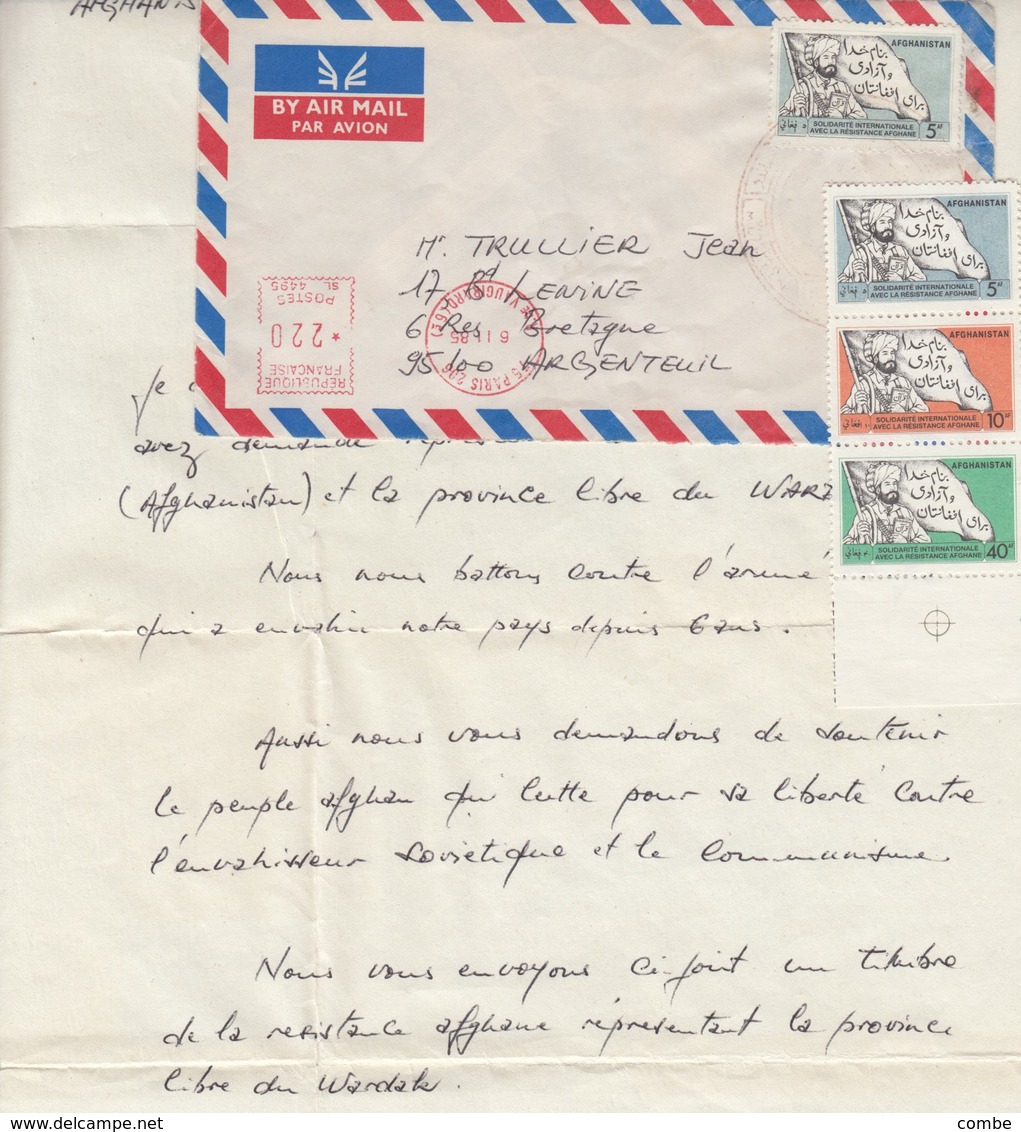 AFGHANIS
BY AIR MAIL
PAR AVION
AFGHANISTAN
بنام خدا
و آزادی
برای افغانستان
SOLIDARITÉ INTERNATIONALE
AVEC LA RÉSISTANCE AFGHANE
5 AF
Mr. TRULLIER Jean
17 Bd LENINE
6 Res Bretagne
95100 ARGENTEUIL
REPUBLIQUE
FRANCAISE
220
POSTES
SL 4495
75 PARIS 206
6 11 85
R. DE VAUGIRARD (6E)
AFGHANISTAN
بنام خدا
و آزادی
برای افغانستان
SOLIDARITÉ INTERNATIONALE
AVEC LA RÉSISTANCE AFGHANE
5 AF
AFGHANISTAN
بنام خدا
و آزادی
برای افغانستان
SOLIDARITÉ INTERNATIONALE
AVEC LA RÉSISTANCE AFGHANE
10 AF
AFGHANISTAN
بنام خدا
و آزادی
برای افغانستان
SOLIDARITÉ INTERNATIONALE
AVEC LA RÉSISTANCE AFGHANE
40 AF
Je
avez demande
(Afghanistan) et la province libre du WAR
Nous nous battons contre l'armé
qui a envahie notre pays depuis 6 ans.
Aussi nous vous demandons de soutenir
le peuple afghan qui lutte pour sa liberté contre
l'envahisseur soviétique et le communisme.
Nous vous envoyons ci-joint un timbre
de la resistance afghane réprésentant la province
libre du Wardak.
www.delcampe.net
combe